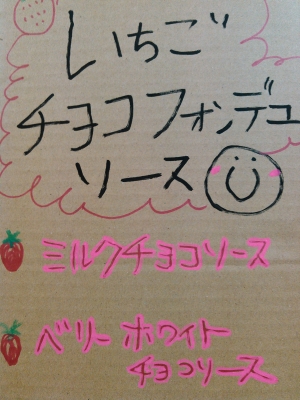 いちご
チョコフォンデュ
ソース
ミルクチョコソース
ベリーホワイト
チョコソース